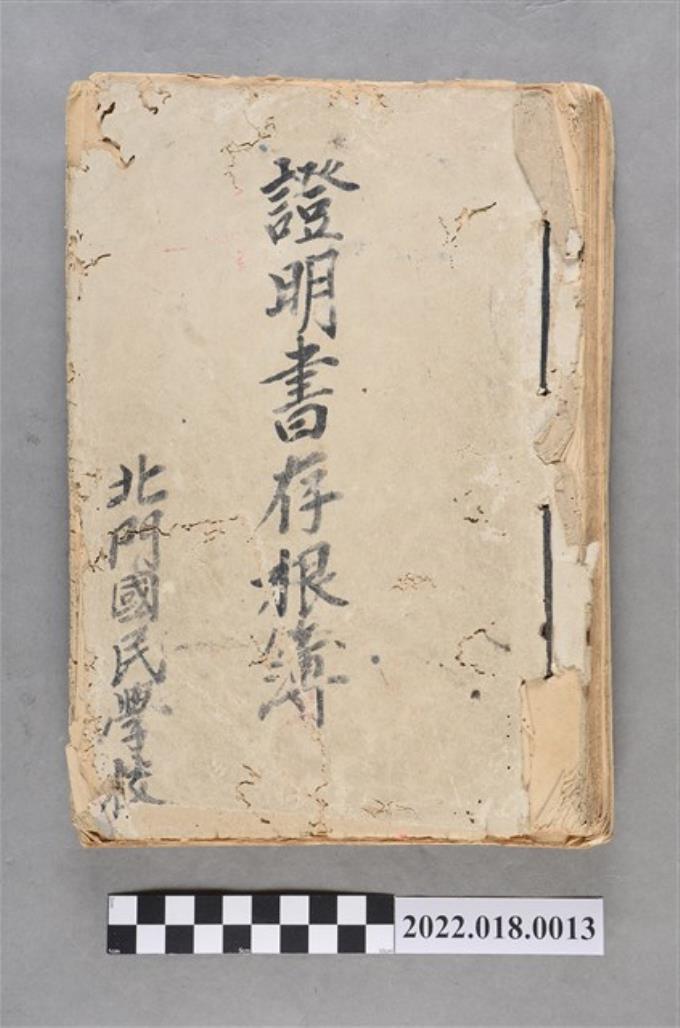 證明書存根簿
北門國民學校
2022.018.0013